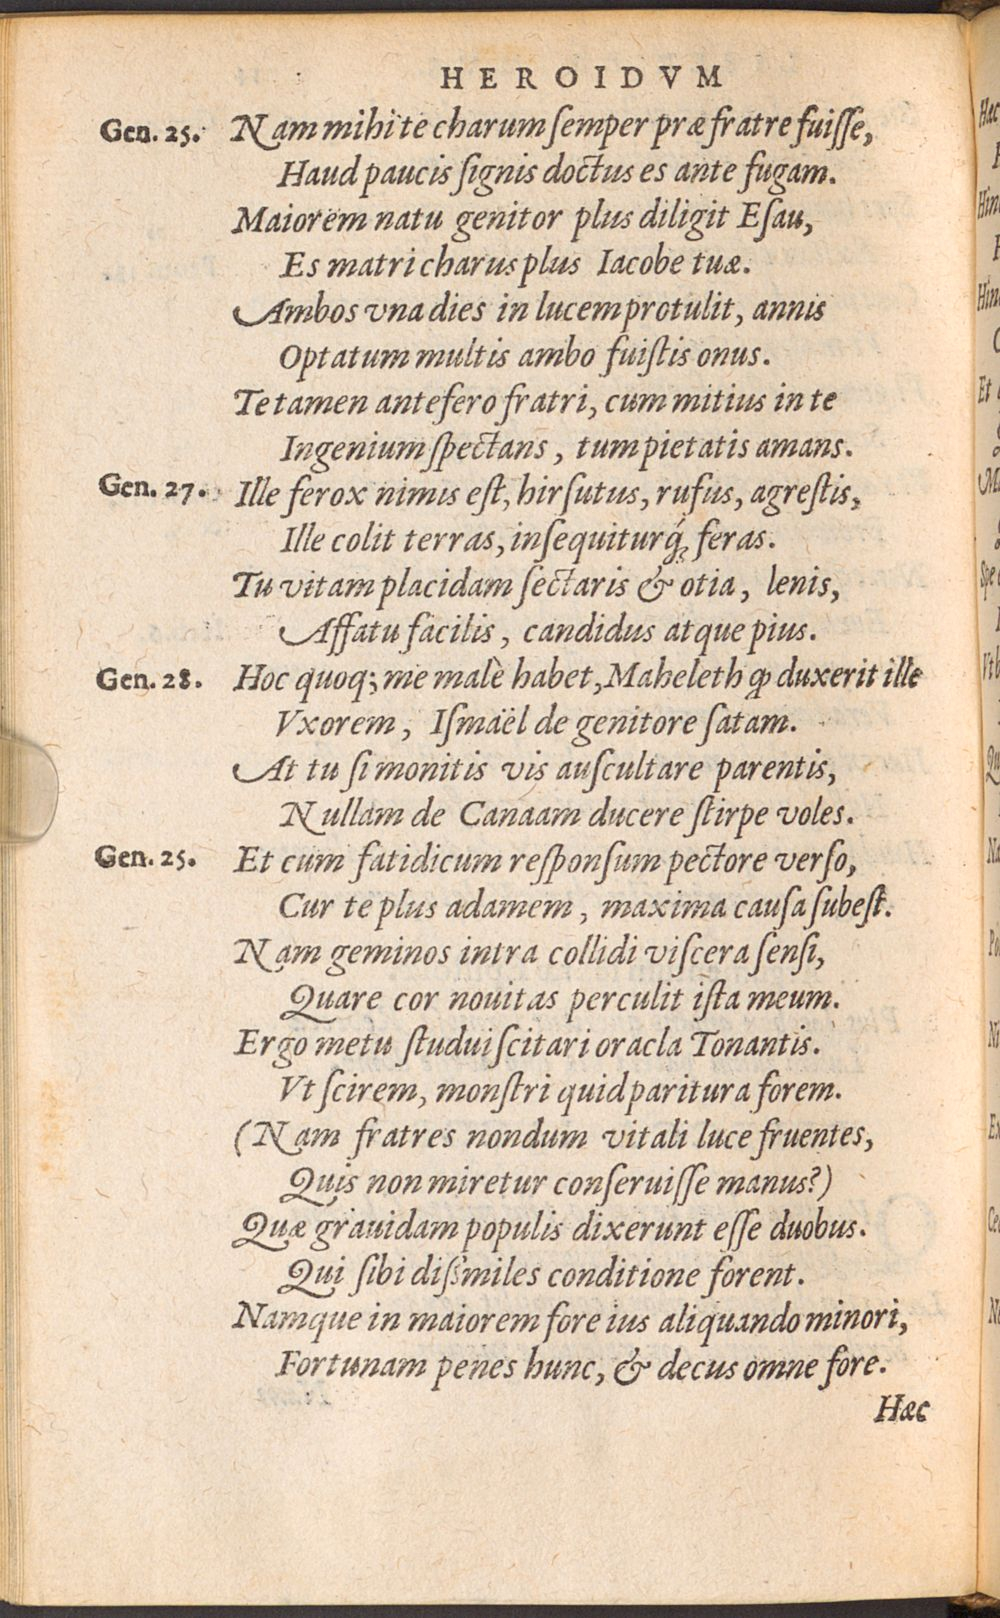 HEROIDVM
Gen. 25. Nam mihi te charum ſemper præ fratre fuiſſe,
Haud paucis ſignis doctus es ante fugam.
Maiorem natu genitor plus diligit Eſau,
Es matri charus plus Iacobe tuæ.
Ambos vna dies in lucem protulit, annis
Optatum multis ambo fuiſtis onus.
Te tamen antefero fratri, cum mitius in te
Ingenium ſpectans, tum pietatis amans.
Gen. 27. Ille ferox nimis eſt, hirſutus, rufus, agreſtis,
Ille colit terras, inſequiturq́; feras.
Tu vitam placidam ſectaris & otia, lenis,
Affatu facilis, candidus atque pius.
Gen. 28. Hoc quoq; me malè habet, Maheleth ꝙ duxerit ille
Vxorem, Iſmaël de genitore ſatam.
At tu ſi monitis vis auſcultare parentis,
Nullam de Canaam ducere ſtirpe voles.
Gen. 25. Et cum fatidicum reſponſum pectore verſo,
Cur te plus adamem, maxima cauſa ſubeſt.
Nam geminos intra collidi viſcera ſenſi,
Quare cor nouitas perculit iſta meum.
Ergo metu ſtudui ſcitari oracla Tonantis.
Vt ſcirem, monſtri quid paritura forem.
(Nam fratres nondum vitali luce fruentes,
Quis non miretur conſeruiſſe manus?)
Quæ grauidam populis dixerunt eſſe duobus.
Qui ſibi diſsimiles conditione forent.
Namque in maiorem fore ius aliquando minori,
Fortunam penes hunc, & decus omne fore.
Hæc